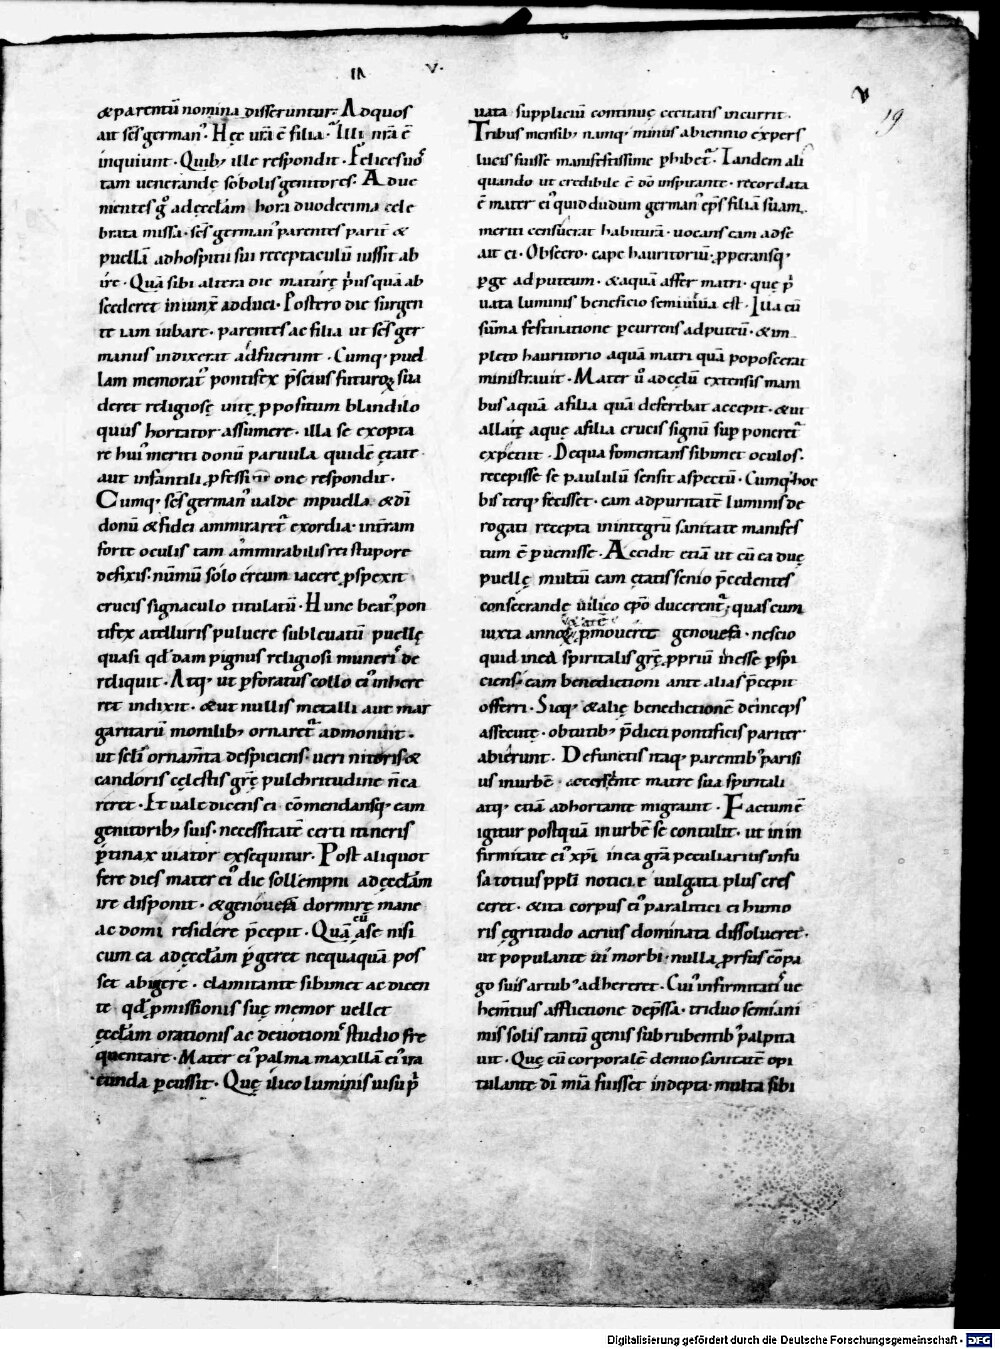 VI V. V
19
& parentũ nomina disseruntur. Ad quos
ait scs̄ german᾽. Hęc ur̄a ē filia᾽? Illi nr̄a ē
inquiunt. Quib; ille respondit. Felices uo᾽
tam uenerandę sobolis genitores. Adue
nientes g° ad ęcclām hora duodecima cele
brata missa. scs̄ german᾽ parentes parit̄ &
puellā ad hospitii sui receptaculū iussit ab
ire. Quā sibi altera die mature p̄us quā ab
scederet iniunx̄ adduci. Postero die surgen
te iam iubare. parentes ac filia ut scs̄ ger
manus indixerat adfuerunt. Cumq; puel
lam memorat᾽ pontifex p̄scius futuroꝝ sua
deret religiosę uitę ꝓpositum blandilo
quus hortator assumere. illa se exopta
re hui᾽ meriti donū paruula quidē ętate
aut infantili ꝓfessione respondit.
Cumq; scs̄ german᾽ ualde in puella & dī
donū & fidei ammiraret᾽ exordia. intēam
forte oculis tam ammirabilis rei stupore
defixis. nūmū solo ereum iacere ꝑspexit
crucis signaculo titulatū. Hunc beat᾽ pon
tifex a telluris puluere subleuatū puellę
quasi qd̄dam pignus religiosi muneri᾽ de
reliquit. Atq; ut ꝑforatus collo ei᾽ inhere
ret indixit. & ut nullis metalli aut mar
garitarū monilib; ornaret᾽ admonuit.
ut scłi ornam̄ta despiciens. ueri nitoris &
candoris cęlestis grē pulchritudine n̄ ca
reret. Et uale dicens ei cōmendansq; eam
genitorib; suis. necessitatē certi itineris
ꝑtinax uiator exsequitur. Post aliquot
fere dies mater ei᾽ die sollempni ad ęcclām
ire disponit. & genouefā dormire mane
ac domi residere p̄cepit. Quā cū a se nisi
cum ea ad ęcclām ꝑgeret nequaquā pos
set abigere. clamitante sibimet ac dicen
te qd̄ ꝓmissionis suę memor uellet
ęcclām orationis ac deuotioni᾽ studio fre
quentare. Mater ei᾽ palma maxillā ei᾽ ira
cunda percussit. Quę ilico luminis uisu p̄
uata suppliciū continuę cecitatis incurrit.
Tribus mensib; namq; minus a biennio expers
lucis fuisse manifestissime phibet᾽. Tandem ali
quando ut credibile ē dō inspirante. recordata
ē mater ei᾽ quid dudum german᾽ ep̄s filiā suam
meriti censuerat habiturā. uocans eam ad se
ait ei. Obsecro. cape hauritoriū. ꝓperansq;
ꝑge ad puteum. & aquā affer matri. que p̄
uata luminis beneficio semiuiua est. Ita cū
sūma festinatione ꝑcurrens ad puteū. & im
pleto hauritorio aquā matri quā poposcerat
ministrauit. Mater ū ad cęlū extensis mani
bus aquā a filia quā deferebat accepit. & ut
allatę aquę a filia crucis signū sup poneret᾽
expetiit. De qua fomentans sibimet oculos.
recepisse se paululū sensit aspectū. Cumq; hoc
bis terq; fecisset. eam ad puritatē luminis de
rogati recepta in integrū sanitate manifes
tum ē ꝑuenisse. Accidit etiā ut cū ea duę
puellę multū eam ętatis senio p̄cedentes
consecrandę uilico epō ducerent᾽; quas cum
iuxta annoꝝ ꝓmoueret genouefa. nescio
quid in ea spiritalis grę ꝓpriū inesse ꝑspi
ciens. eam benedictioni ante alias p̄cepit
offerri. Sicq; & alię benedictionē deinceps
assecutę. obtutib; p̄dicti pontificis pariter
abierunt. Defunctis itaq; parentib᾽ parisi
us in urbē. accersente matre sua spiritali
atq; etiā adhortante migrauit. Factum ē
igitur postquā in urbē se contulit. ut in in
firmitate ei᾽ xp̄i in ea grā peculiarius infu
sa totius ppłi notici e uulgata plus cres
ceret. & ita corpus ei᾽ paralitici ei humo
ris ęgritudo acrius dominata dissolueret.
ut populante ui morbi. nulla ꝓrsus cōpa
go suis artub᾽ adhereret. Cui᾽ infirmitati᾽ ue
hem̄tius afflictione dep̄ssa. triduo semiani
mis solis tantū genis subrubentib᾽ palpita
uit. Quę cū corporalē denuo sanitatē opi
tulante dī mīa fuisset indepta. multa sibi
Digitalisierung gefördert durch die Deutsche Forschungsgemeinschaft - DFG